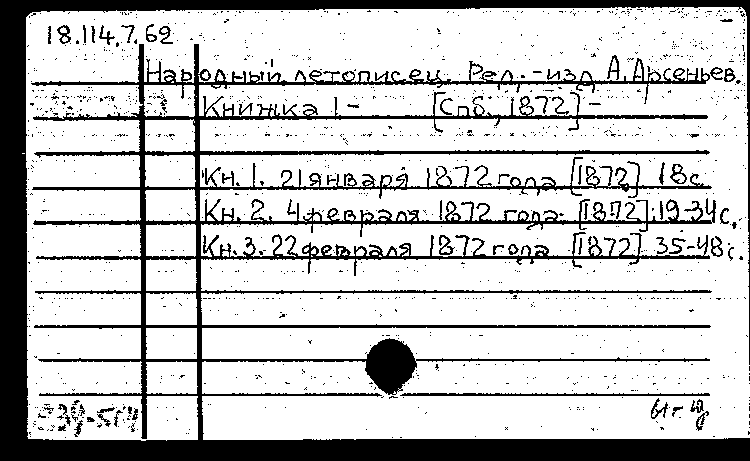 18.114.7.62
Народный летописец. Ред.-изд. А. Арсеньев.
Книжка 1- [Спб., 1872] -
Кн. 1. 21 января 1872 года [1872] 18с.
Кн. 2. 4 февраля 1872 года [1872]. 19-34с.
Кн. 3. 22 февраля 1872 года [1872] 35-48с.